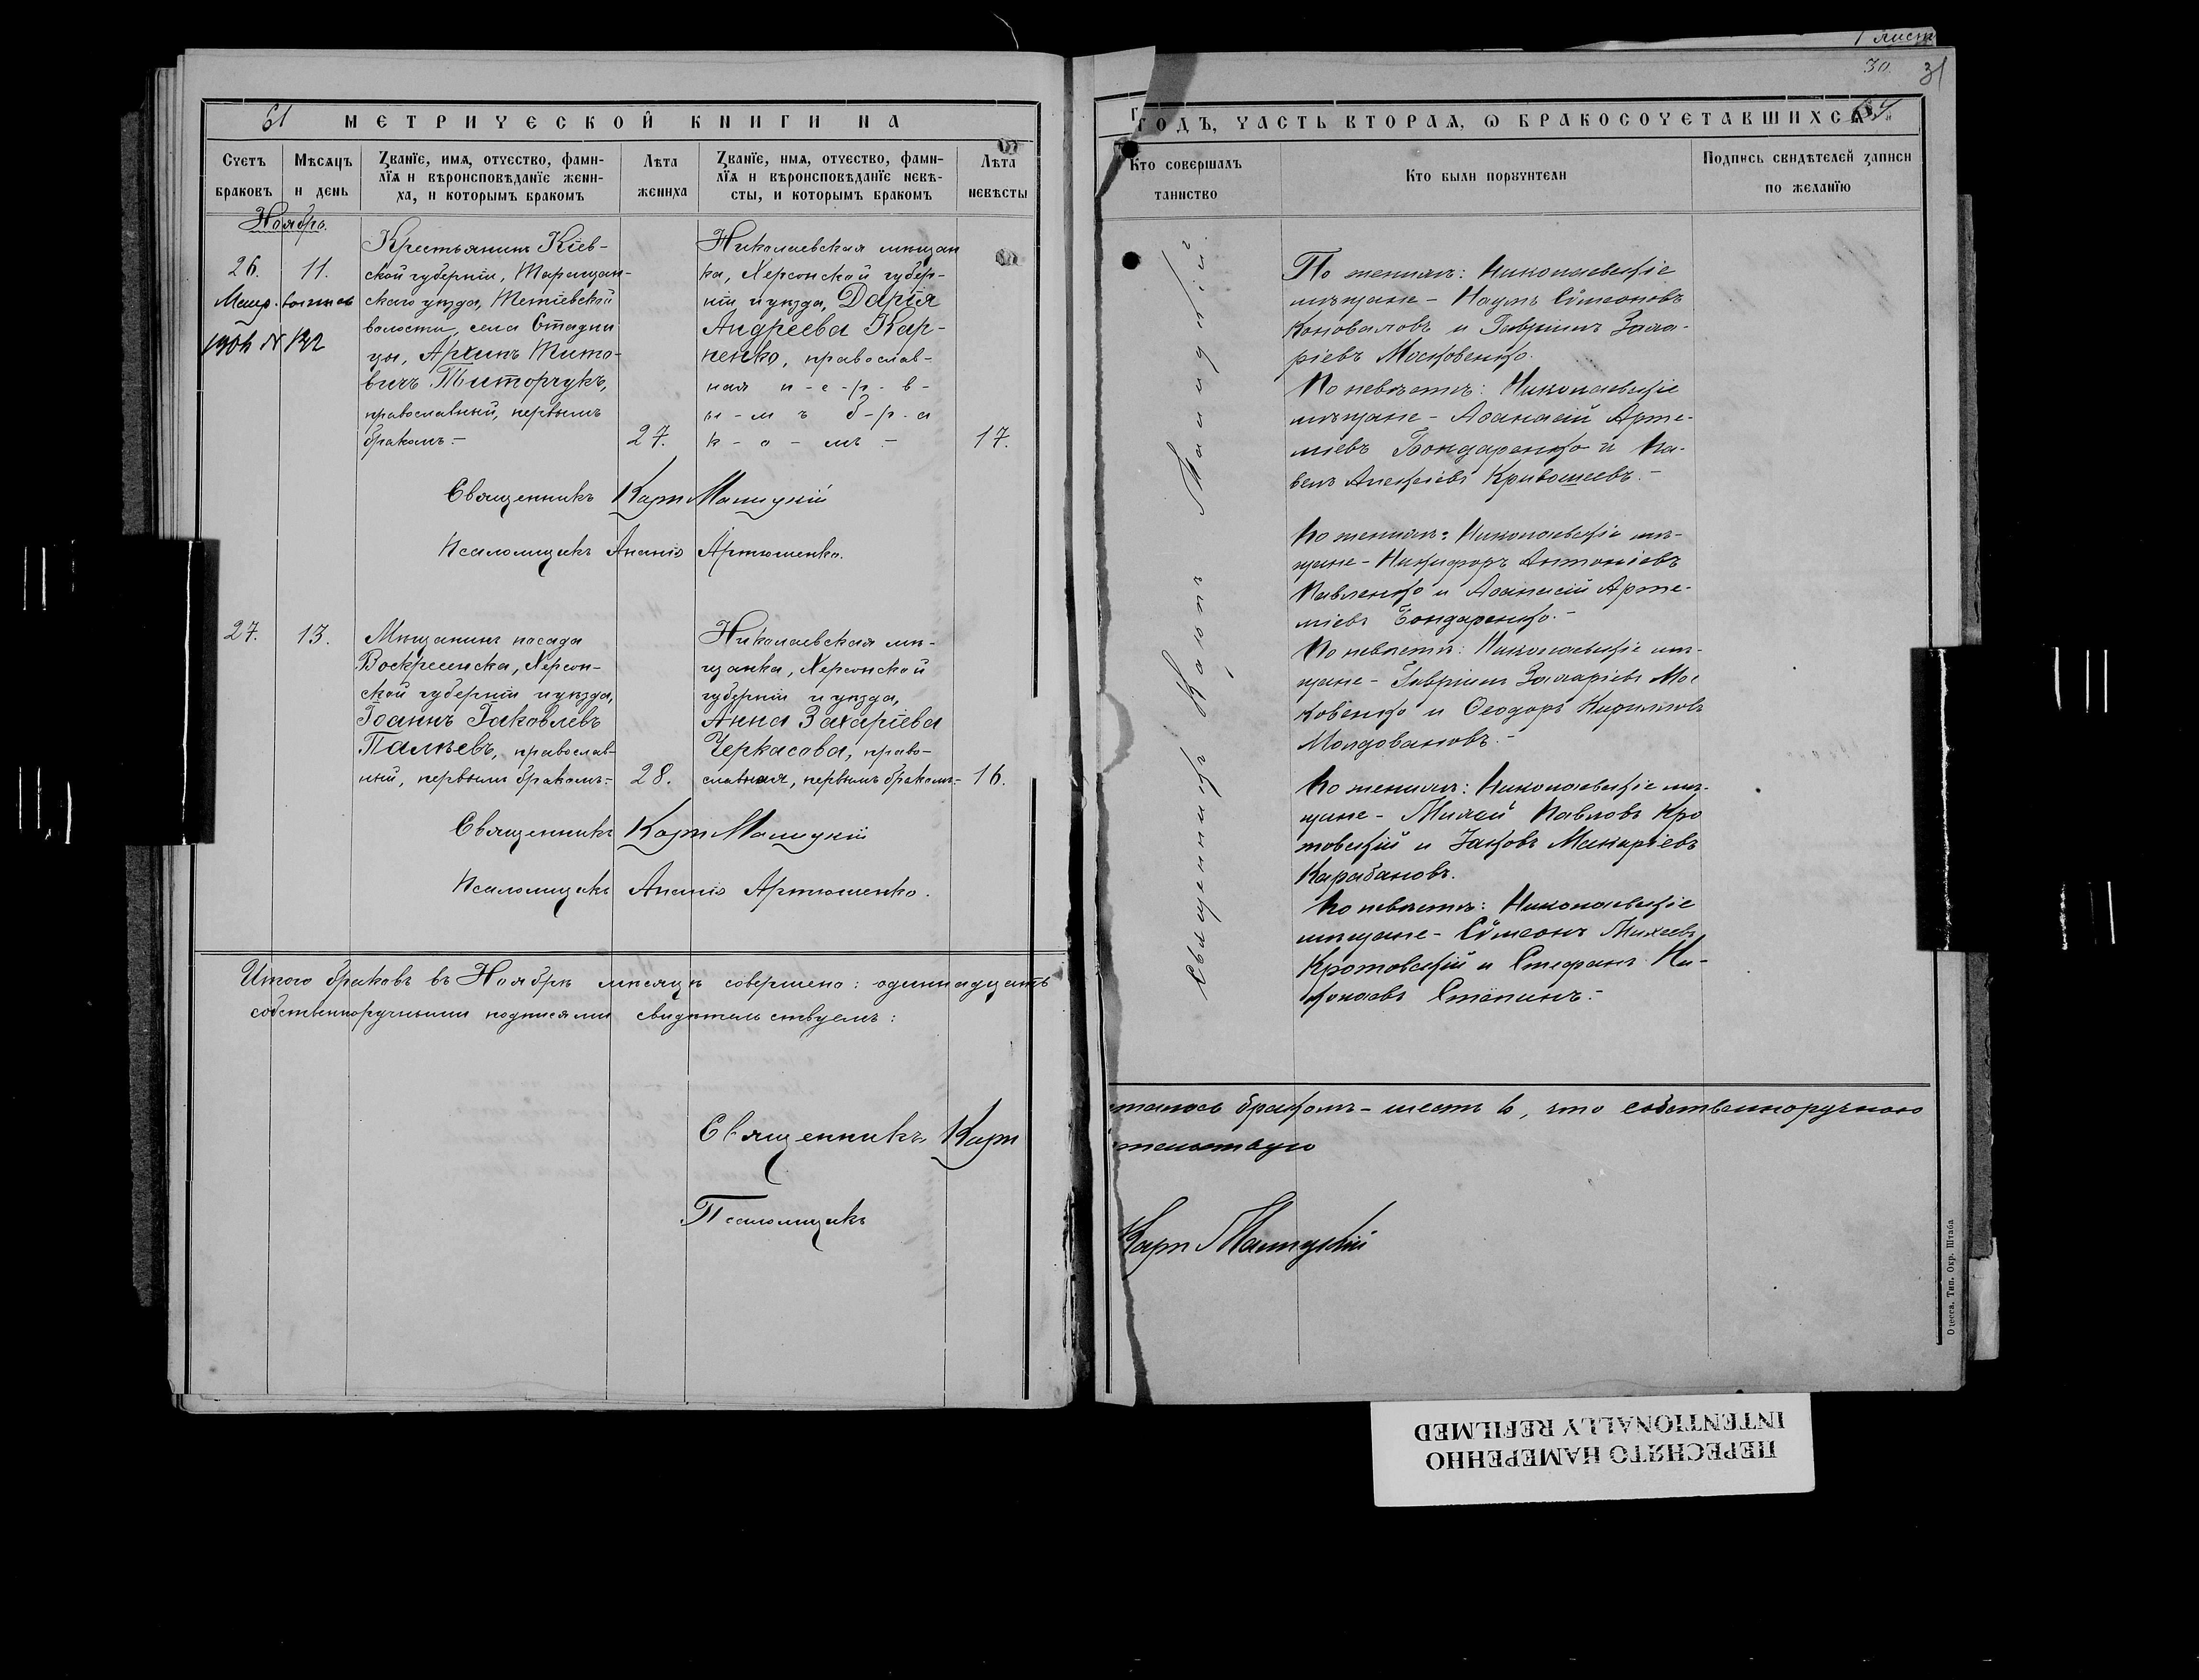 61
МЕТРИЧЕСКОЙ КНИГИ НА
Счетъ браковъ
Мѣсяцъ и день
Званіе, имя, отчество, фами-
лія и вѣроисповѣданіе жени-
ха, и которымъ бракомъ
Лѣта жениха
Званіе, имя, отчество, фами-
лія и вѣроисповѣданіе невѣ-
сты, и которымъ бракомъ
Лѣта невѣсты
Ноябрь.
26.
11.
1904 № 132
Крестьянинъ Кіев-
ской губерніи, Таращан-
скаго уѣзда, Тетіевской
волости, села Стадни
цы, Архипъ Тито-
вичъ Титорчукъ,
православный, первымъ
бракомъ.-
27.
Николаевская мѣщан
ка, Херсонской губер-
ніи и уѣзда, Дарія
Андреева Кар-
пенко, православ-
ная п-е-р-в-
ы-м ъ б-р-а
к-о-мъ.-
17.
Священникъ Карп Малицкій
Псаломщикъ Ананія Артюшенко.
27.
13.
Мѣщанинъ посада
Воскресенска, Херсон-
ской губерніи и уѣзда,
Іоаннъ Іаковлевъ
Палѣевъ, православ-
ный, первымъ бракомъ.-
28.
Николаевская мѣ-
щанка, Херсонской
губерніи и уѣзда,
Анна Захаріева
Черкасова, право-
славная, первымъ бракомъ.-
16.
Священникъ Карп Малицкій
Псаломщикъ Ананія Артюшенко.
Итого браковъ въ Ноябрѣ мѣсяцѣ совершено: одиннадцать
собственноручными подписями свидѣтельствуемъ:
Священникъ Карп
Псаломщикъ
1 листъ
30
31
ГОДЪ, ЧАСТЬ ВТОРАЯ, Ѡ БРАКОСОЧЕТАВШИХСЯ
Кто совершалъ таинство
Кто были поручители
Подпись свидѣтелей записи
по желанію
Священникъ Карпъ Малицкій.
По женихѣ: Николаевскіе
мѣщане - Наумъ Сѵмеоновъ
Коноваловъ и Гавріилъ Заха-
ріевъ Московенко.
По невѣстѣ: Николаевскіе
мѣщане - Аѳанасій Арте-
міевъ Бондаренко и Па-
велъ Алексіевъ Кривошеевъ.-
По женихѣ: Николаевскіе мѣ-
щане - Никифоръ Антоніевъ
Павленко и Аѳанасій Арте-
міевъ Бондаренко.-
По невѣстѣ: Николаевскіе мѣ-
щане - Гавріилъ Захаріевъ Мос
ковенко и Ѳеодоръ Кирилловъ
Молдовановъ.-
По женихѣ: Николаевскіе мѣ-
щане - Михей Павловъ Кро
товскій и Іаковъ Макаріевъ
Карабановъ.
По невѣстѣ: Николаевскіе
мѣщане - Сѵмеонъ Михеевъ
Кротовскій и Стефанъ Ни-
колаевъ Стёпинъ.-
талось бракомъ - шесть 6, что собственноручною
тельствую
Карп Малицкій
Одесса. Тип. Окр. Штаба
ПЕРЕСНЯТО НАМЕРЕННО
INTENTIONALLY REFILMED